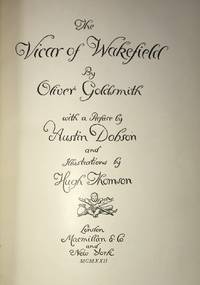 The
Vicar of Wakefield
By
Oliver Goldsmith
with a Preface by
Austin Dobson
and
Illustrations by
Hugh Thomson
London
Macmillan & Co
and
New York
MCMXXII